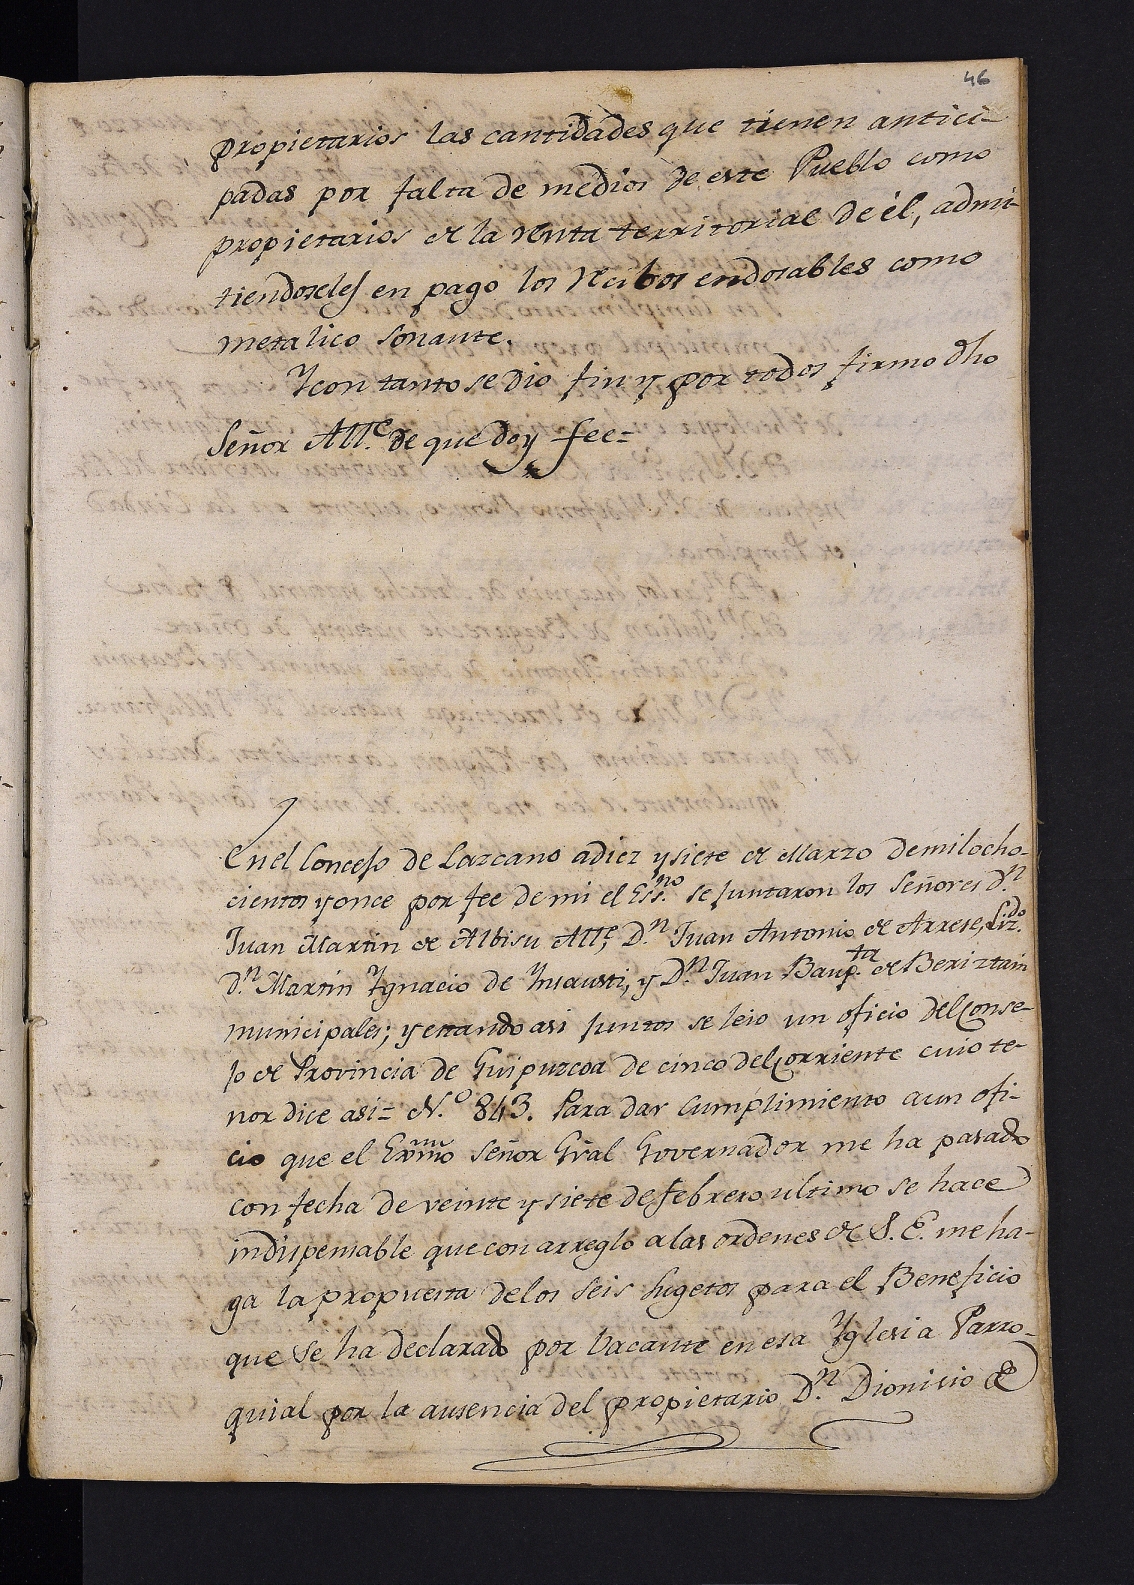 46
propietarios las cantidades que tienen antici-
padas por falta de medios de este Pueblo como
propietarios de la renta territorial de él, admi-
tiendoseles en pago los recibos endosables como
metalico sonante.
Y con tanto se dio fin y por todos firmo dho
Señor Alle. de que doy fee=
En el Concejo de Lazcano a diez y siete de Marzo de mil ocho-
cientos y once por fee de mi el Essno. se juntaron los Señores Dn.
Juan Martin de Albisu Alle, Dn. Juan Antonio de Arrese, Lizdo.
Dn. Martin Ygnacio de Ynsausti, y Dn. Juan Baupta. de Beriztain
municipales; y estando asi juntos se leio un oficio del Conse-
jo de Provincia de Guipuzcoa de cinco del Corriente cuio te-
nor dice asi= N.o 843. Para dar Cumplimiento a un ofi-
cio que el Exmmo Señor Gral Governador me ha pasado
con fecha de veinte y siete de febrero ultimo se hace
indispensable que con arreglo a las ordenes de S. E. me ha-
ga la propuesta de los seis sugetos para el Beneficio
que se ha declarado por bacante en esa Yglesia Parro-
quial por la ausencia del propietario Dn. Dionicio de